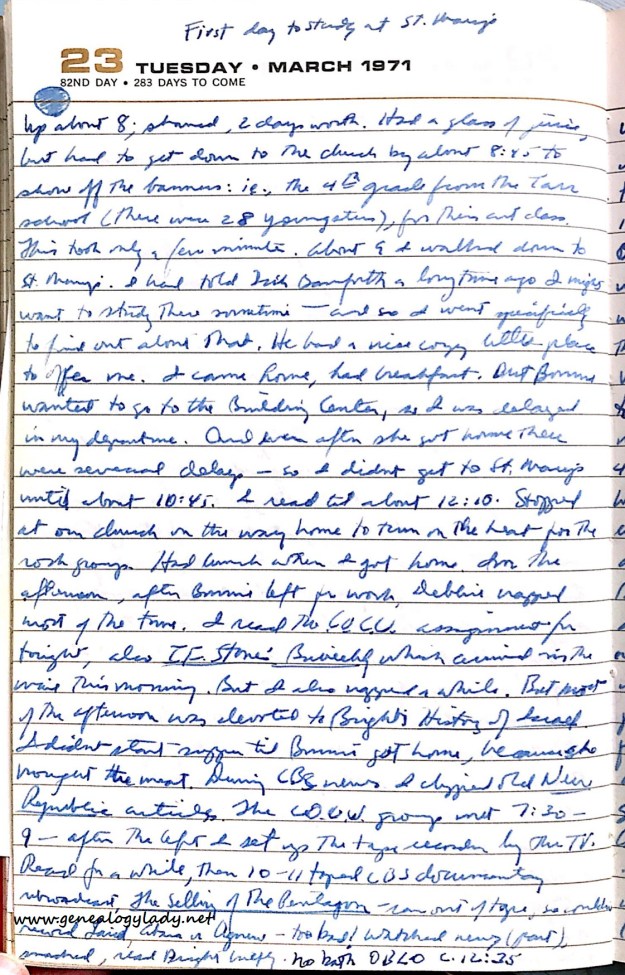 First day to study at St. Mary's
23 TUESDAY • MARCH 1971
82ND DAY • 283 DAYS TO COME
Up about 8; shaved, 2 days worth. Had a glass of juice,
but had to get down to the church by about 8:45 to
show off the banners: ie., the 4th grade from the Tarr
school (there were 28 youngsters), for their art class.
This took only a few minutes. About 9 I walked down to
St. Mary's. I had told Dick a long time ago I might
want to study there sometime — and so I went specifically
to find out about that. He had a nice cozy little place
to offer me. I came home, had breakfast. But Bonnie
wanted to go to the Building Center, so I was delayed
in my departure. And even after she got home there
were several delays — so I didn't get to St. Mary's
until about 10:45. I read til about 12:10. Stopped
at our church on the way home to turn on the heat for the
rock group. Had lunch when I got home. In the
afternoon, after Bonnie left for work, Debbie napped
most of the time. I read the C.O.C.U. assignment for
tonight, also I.F. Stone's Biweekly which arrived in the
this morning. But I also napped a while. But most
of the afternoon was devoted to Bright's History of Israel
I didn't start supper til Bonnie got home, because she
brought the meat. During CBS news I clipped old New
Republic articles. The C.O.C.U. group met 7:30 –
9 – after they left I set up the tape recorder by the TV.
Read for a while, then 10-11 taped CBS documentary
rebroadcast, The Selling of the Pentagon – ran out of tape, so couldn't
record Laird, or Agnew – too bad! Watched news (part),
snacked, read Bright briefly. No bath OBLO c. 12:35
www.genealogylady.net